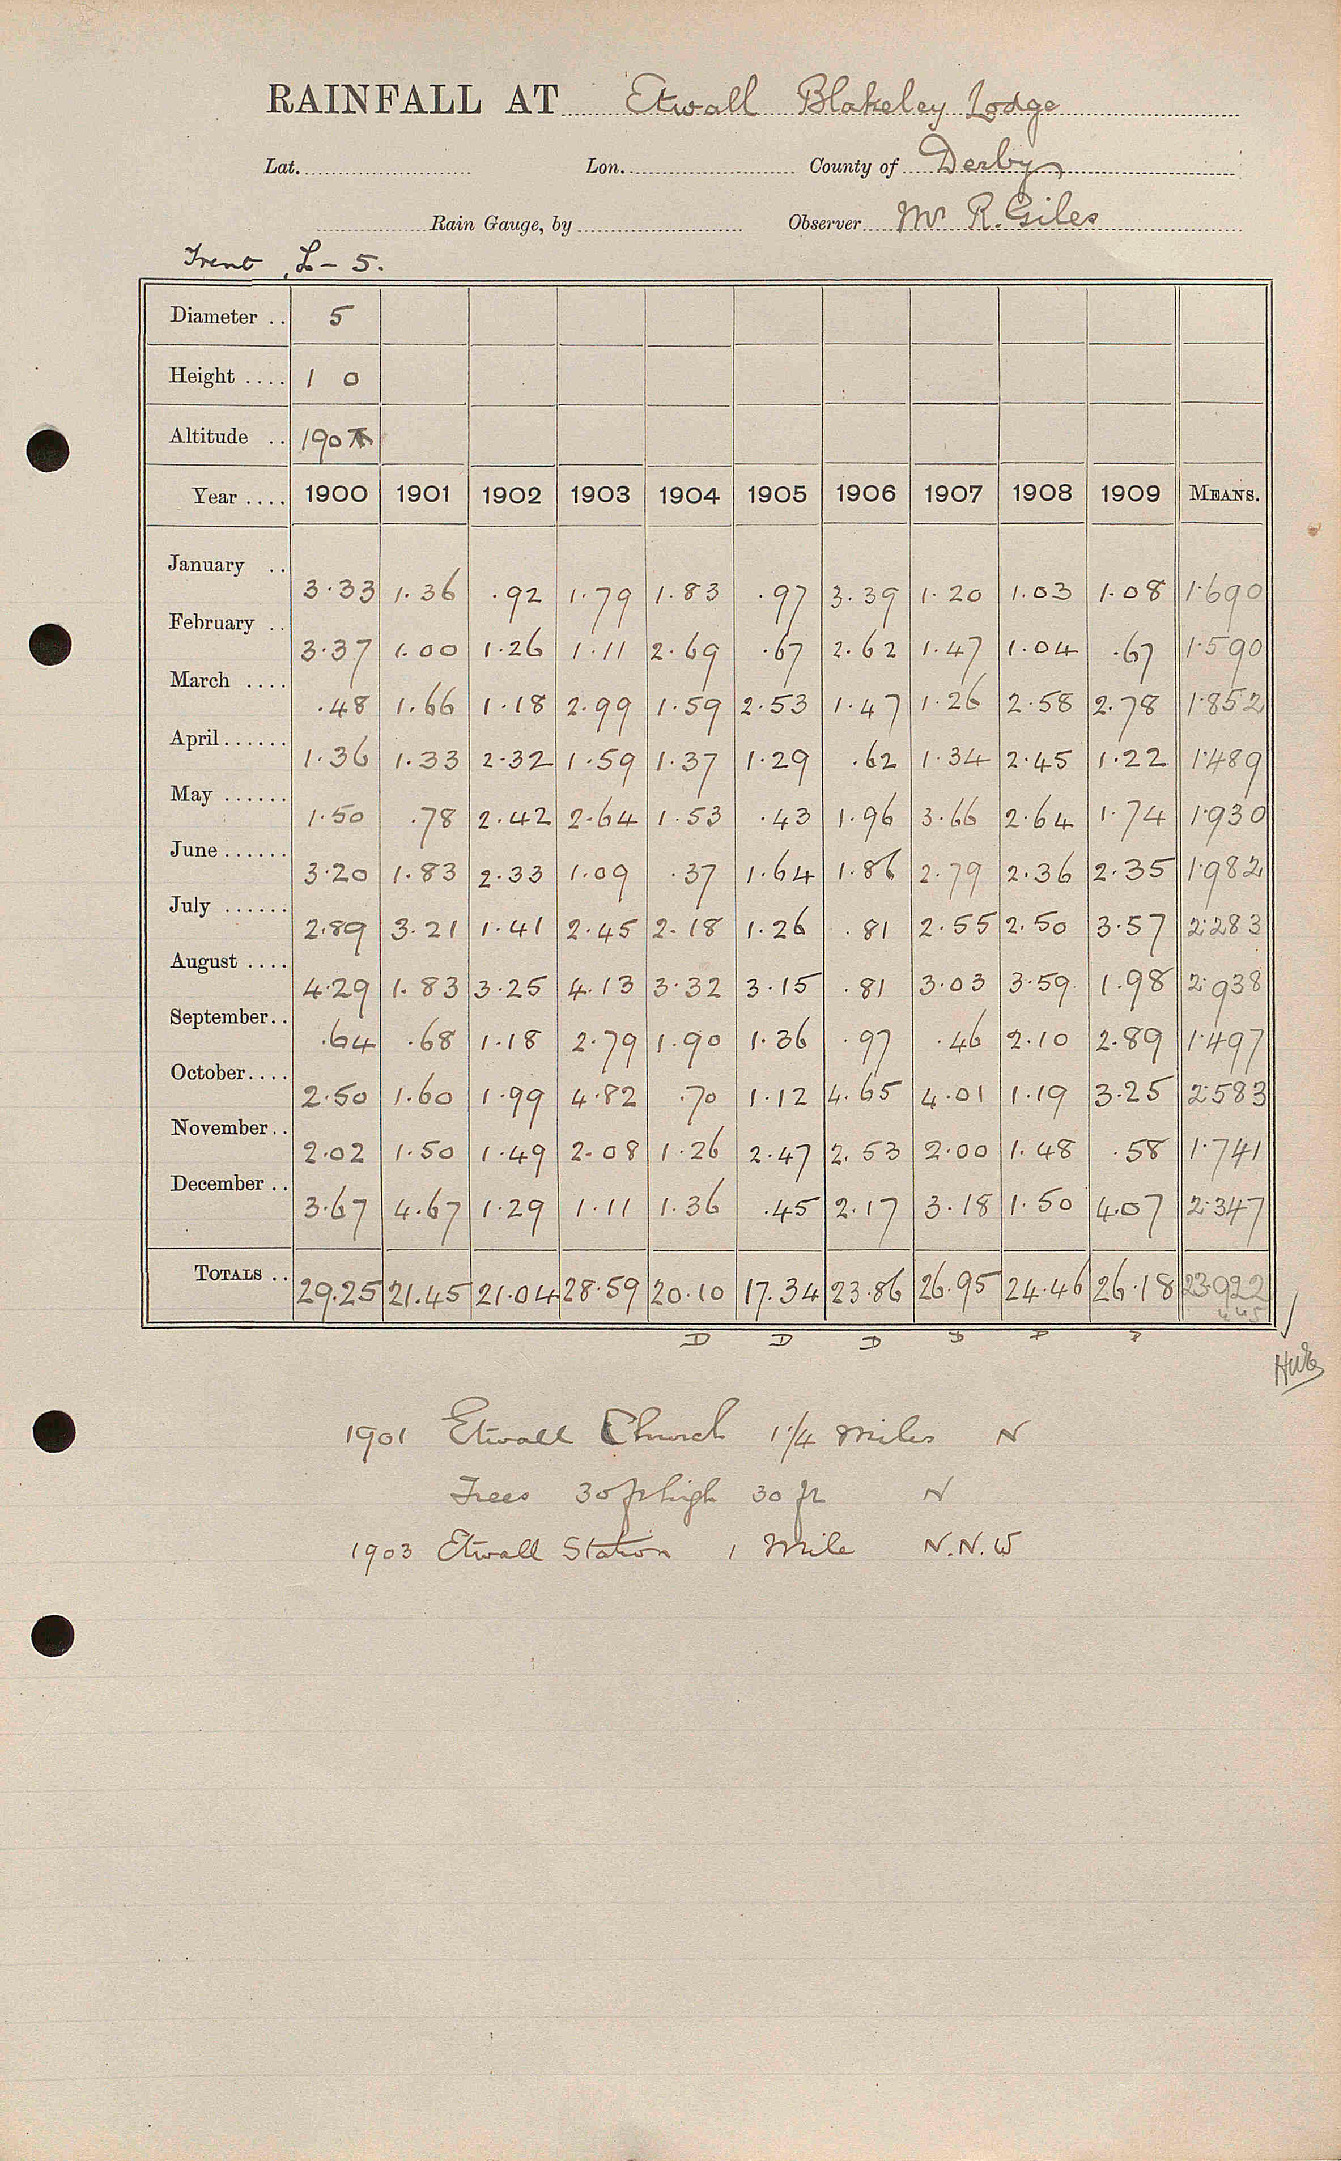 RAINFALL AT Etwall Blakeley Lodge
Lat. Lon. County of Derby
Rain Gauge, by Observer Mr R. Giles
Trent L - 5.
Diameter .. 5
Height .... 1 0
Altitude .. 190
Year .... 1900 1901 1902 1903 1904 1905 1906 1907 1908 1909 MEANS.
January .. 3.33 1.36 .92 1.79 1.83 .97 3.39 1.20 1.03 1.08 1.690
February .. 3.37 1.00 1.26 1.11 2.69 .67 2.62 1.47 1.04 .67 1.590
March .... .48 1.66 1.18 2.99 1.59 2.53 1.47 1.26 2.58 2.78 1.852
April...... 1.36 1.33 2.32 1.59 1.37 1.29 .62 1.34 2.45 1.22 1.489
May ...... 1.50 .78 2.42 2.64 1.53 .43 1.96 3.66 2.64 1.74 1.930
June ...... 3.20 1.83 2.33 1.09 .37 1.64 1.86 2.79 2.36 2.35 1.982
July ...... 2.89 3.21 1.41 2.45 2.18 1.26 .81 2.55 2.50 3.57 2.283
August .... 4.29 1.83 3.25 4.13 3.32 3.15 .81 3.03 3.59 1.98 2.938
September.. .64 .68 1.18 2.79 1.90 1.36 .97 .46 2.10 2.89 1.497
October.... 2.50 1.60 1.99 4.82 .70 1.12 4.65 4.01 1.19 3.25 2.583
November.. 2.02 1.50 1.49 2.08 1.26 2.47 2.53 2.00 1.48 .58 1.741
December .. 3.67 4.67 1.29 1.11 1.36 .45 2.17 3.18 1.50 4.07 2.347
TOTALS .. 29.25 21.45 21.04 28.59 20.10 17.34 23.86 26.95 24.46 26.18 23.922
D D D D D D
1901 Etwall Church 1 1/4 miles N
Trees 30 ft high 30 ft N
1903 Etwall Station 1 Mile N.N.W